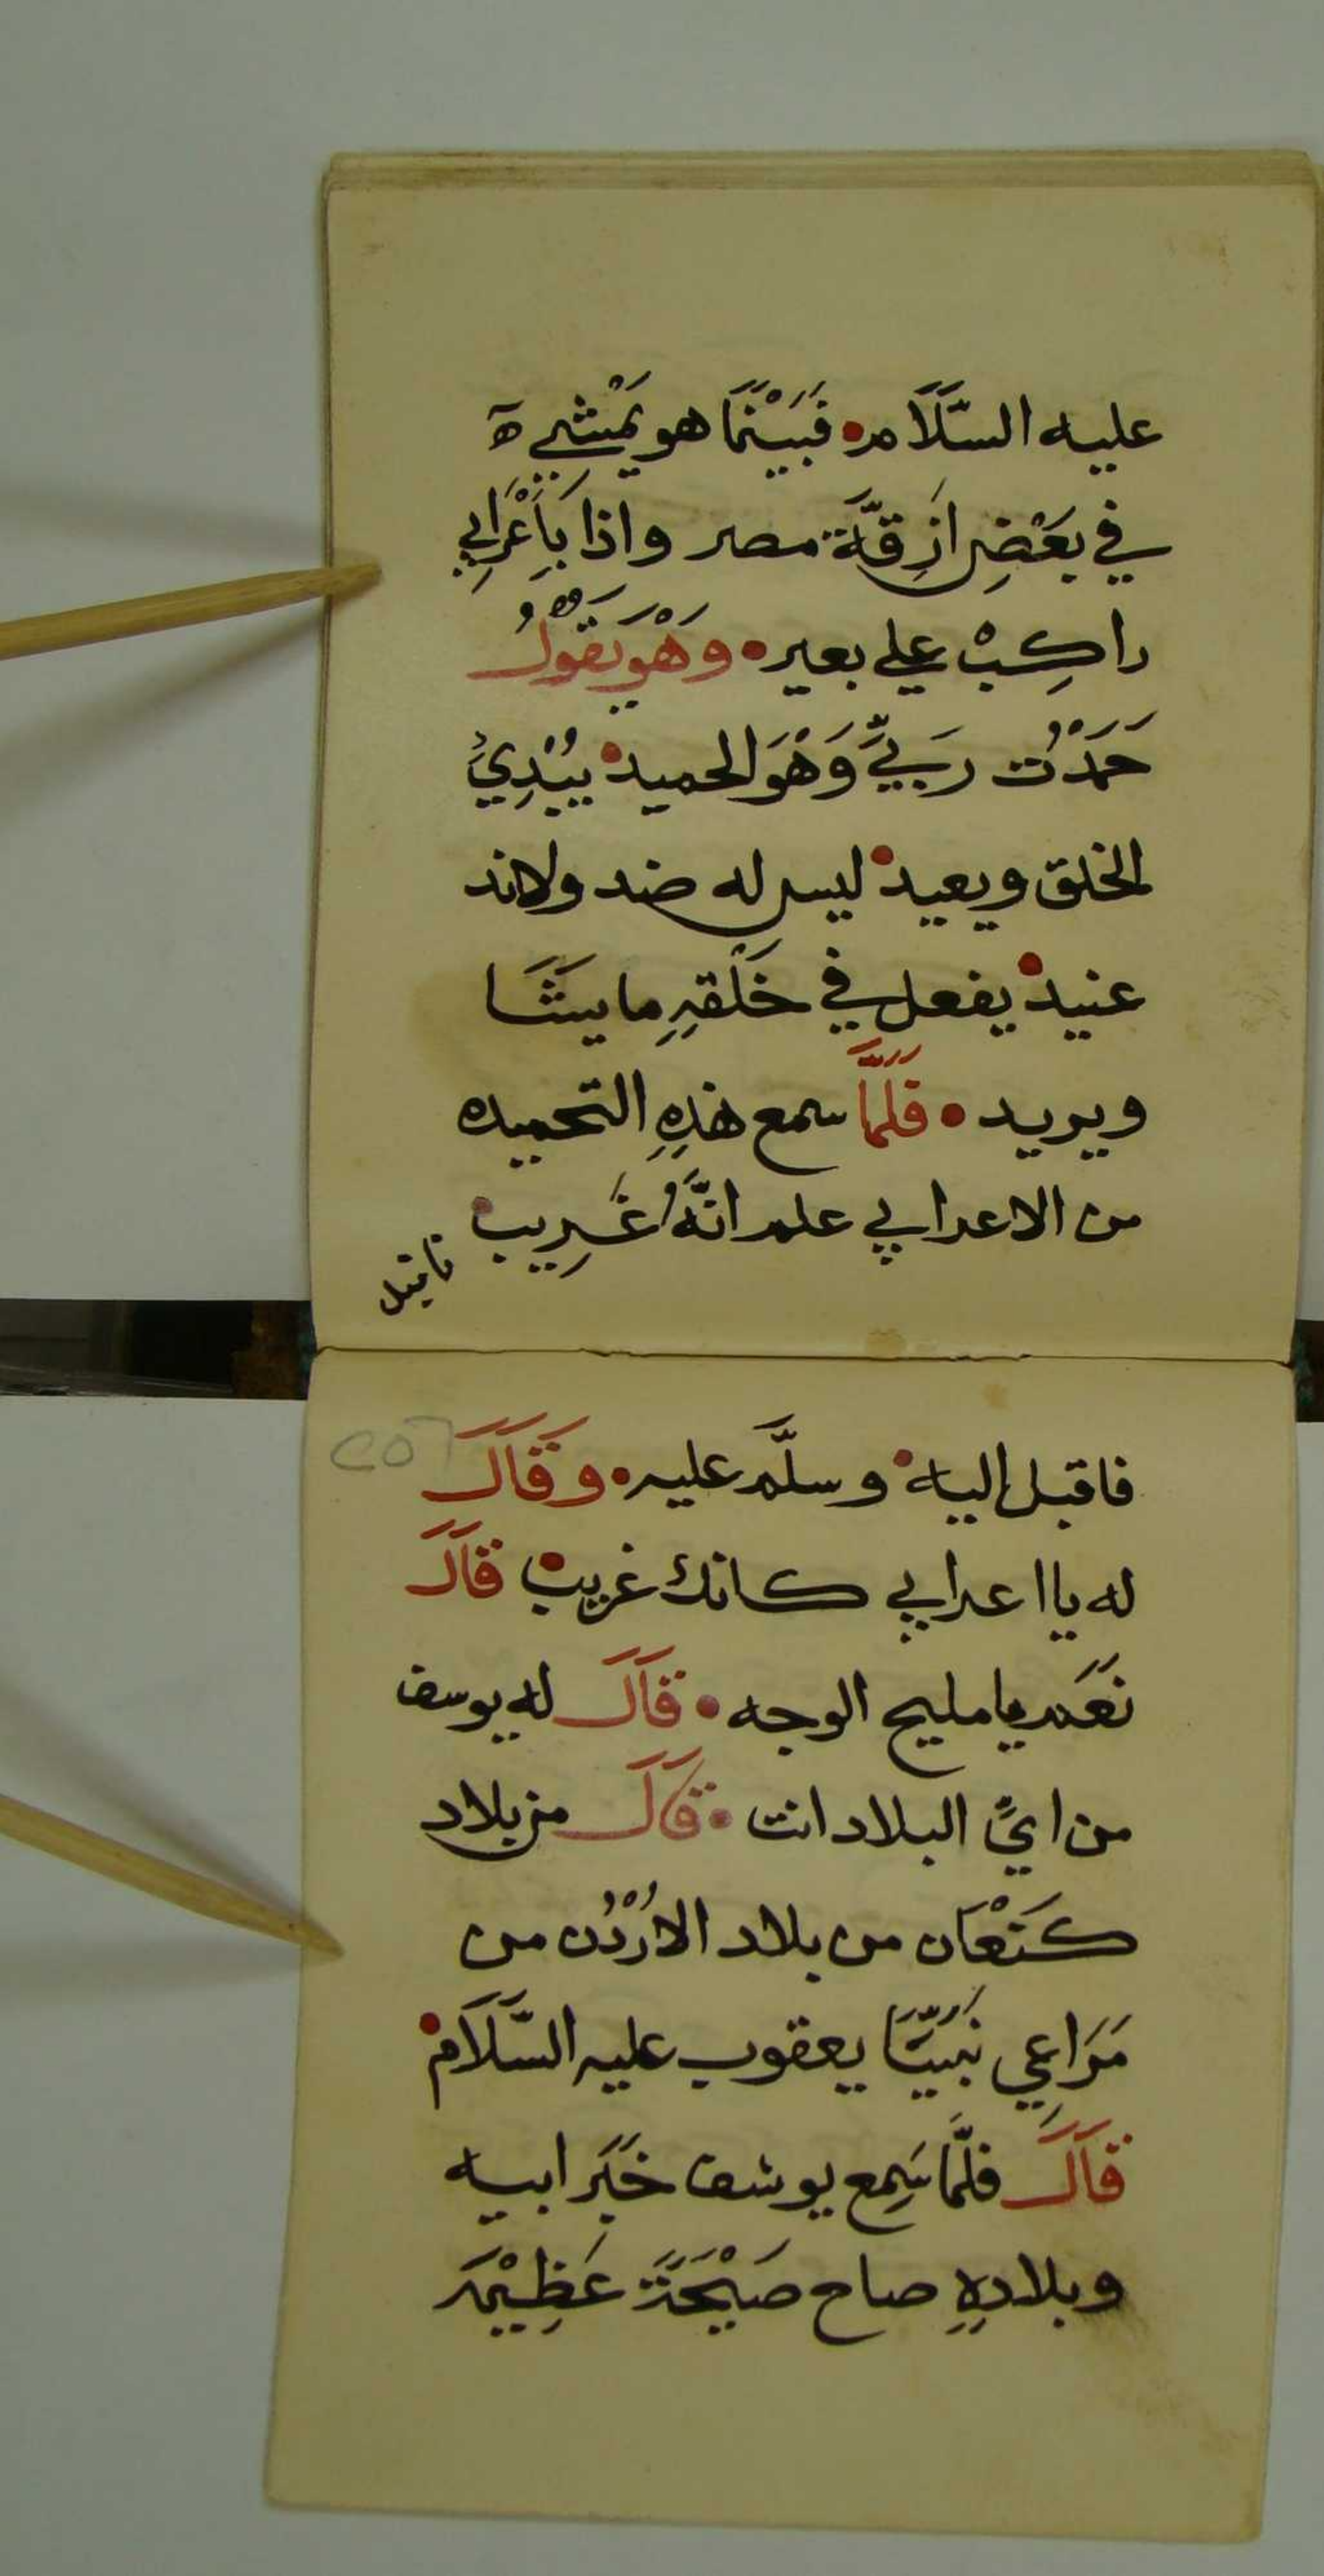 عليه السَّلَام • فَبَيْنَمَا هو يَمْشِي ه
في بَعْضِ ازِقَّة مصر واذا بِأَعْرَابِي
راكِبْ علي بعير • وَهْوَ يَقُوْلُ
حَمَدْتُ رَبِّي وَهْوَ الحميد • يُبْدِيُ
الخلق ويعيد • ليس له ضد ولا ند
عنيد • يفعل في خَلْقِهِ ما يَشَا
ويريد • فَلَمَّا سمع هَذِهِ التحميده
من الاعرابي علم انَّهُ غَرِيب •
فاقبل
فاقبل اليه • وسلَّم عليه • وَقَالَ
له يا اعرابي كانك غريب • قَالَ
نَعَم يا مليح الوجه • قَالَ له يوسف
من ايِّ البلاد انت • قَالَ من بلاد
كَنْعَان من بلاد الاُرْدُن من
مَرَاعِي نَبِيِّنَا يعقوب عليه السَّلَام •
قَالَ فلَمَّا سَمِع يوسف خَبَر ابيه
وبلادِهِ صاح صَيْحَةً عَظِيْمَه
٢٥٦